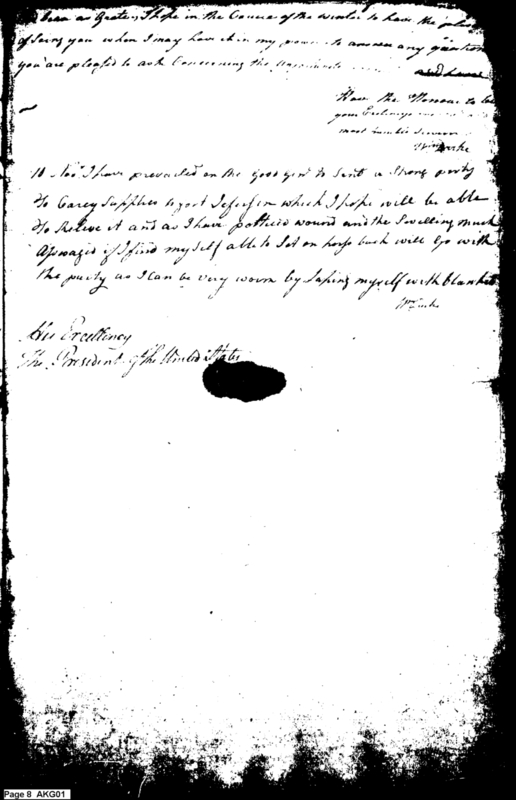 been as Grate, I hope in the Course of the winter to have the
of Seing you when I may have it in my power to answer any question
you are pleased to ask Concerning the
Have the Honour to be
your Excellencys
most humble Servant
Wm Darke
10 Novr I have prevailed on the good genl to Sent a Strong party
To Carey Supplies to fort Jefferson which I hope will be able
To Releive it and as I have wound and the Swelling much
Aswaged if I find myself able to Set on hors back will Go with
the party as I can be very worm by Laping myself with blankets
Wm Darke
His Excellency
The President of the United States
Page 8 AKG01